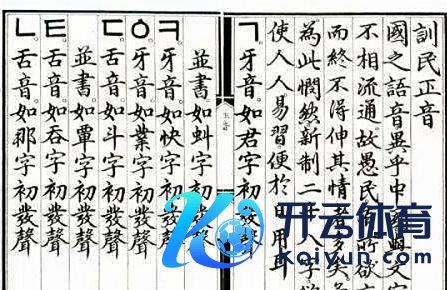 訓民正音
國之語音異乎中與文
不相流通故愚民有所欲
而終不得伸其情者多矣
為此憫然新制二十八字
使人人易習便於日用耳
ㄱ牙音。如君字初發聲
並書。如虯字初發聲
ㅋ牙音。如快字初發聲
ㆁ牙音。如業字初發聲
ㄷ舌音。如斗字初發聲
並書。如覃字初發聲
ㅌ舌音。如呑字初發聲
ㄴ舌音。如那字初發聲
开云体育
kaiyun.com